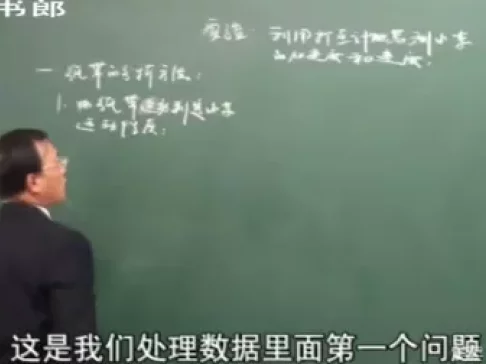 书郎
实验：利用打点计时器测小车
的加速度和速度：
一 纸带的分析方法：
1. 由纸带判别小车
运动性质：
这是我们处理数据里面第一个问题